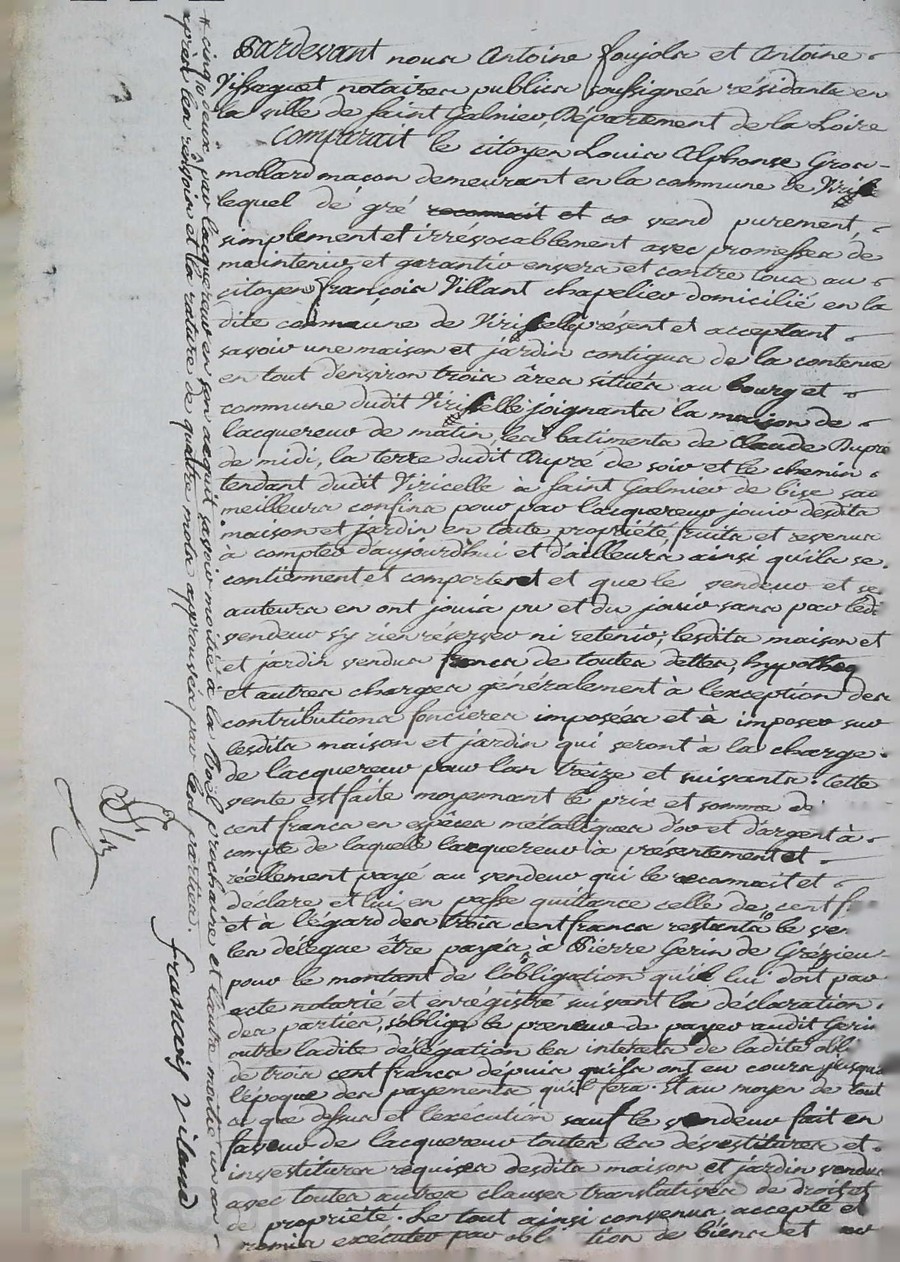 Pardevant nous Antoine foujols et Antoine
Vissaguet notaires publics soussignés résidants en
la ville de saint Galmier, Département de la Loire
Comparait le citoyen Louis Alphonse Gros-
mollard maçon demeurant en la commune de
lequel de gré reconnait et vend purement,
simplement et irrévocablement avec promesses de
maintenir et garantir envers et contre tous au
citoyen françois Villant chapelier domicilié en la
dite commune de Viricelle présent et acceptant
savoir une maison et jardin contigus de la contenue
en tout d'environ trois âres situés au bourg et
commune dudit Viricelle joignants la maison de
lacquereur de matin, les batiments de Claude Dupré
de midi, la terre dudit Dupré de soir et le chemin
tendant dudit Viricelle à saint Galmier de bise sauf
meilleurs confins pour par lacquereur jouir desdits
maison et jardin en toute propriété fruits et revenus
à compter d'aujourdhui et d'ailleurs ainsi quils se
contiennent et comportent et que le vendeur et ses
auteurs en ont jouis pu et du jouir sans par ledit
vendeur s'y rien réserver ni retenir; lesdits maison et
et jardin vendus francs de toutes dettes, hypotheq
et autres charges généralement à l'exception des
contributions foncieres imposées et à imposer sur
lesdits maison et jardin qui seront à la charge
de lacquereur pour l'an treize et suivants. Cette
vente est faite moyennant le prix et somme de
cent francs en espêces métaliques d'or et d'argent à
compte de laquele lacquereur à présentement et
réellement payé au vendeur qui le reconnait et
déclare et lui en passe quittance celle de cent f.
et à l'égard des trois cent francs restants le ve
les délegue être payés à Pierre Gerin de Grézieu
pour le montant de l'obligation qu'il lui doit par
acte notarié et enrégistré suivant la déclaration
des parties, s'oblige le preneur de payer audit Gerin
outre ladite délégation les intérets de ladite obli
de trois cent francs depuis quils ont eu cours jusqua
l'époque des payements qu'il fera. Et au moyen de tout
ce que dessus et l'exécution sauf le vendeur fait en
faveur de lacquereur toutes les dévestitures et
investitures requises desdits maison et jardin vendus
avec toutes autres clauses translatives de droits et
de propriété. Le tout ainsi convenu accepté et
promis exécuter par obl tion de biens et
par lacquereur en son acquit savoir moitié à la Noël prochaine et l'autre moitié un an
après les et la rature de quatre mots approuvés par les parties.
francois vilano